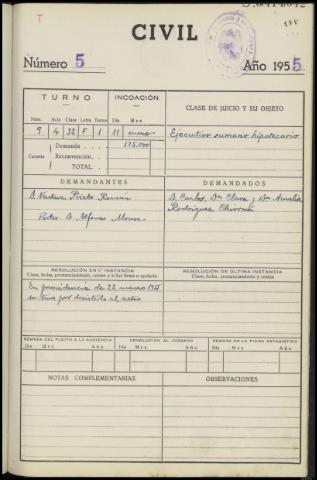 T
CIVIL
Número 5
Año 1955
TURNO
INCOACIÓN
CLASE DE JUICIO Y SU OBJETO
Núm. Aula Clase Letra Turno Día Mes
9 4 32 F 1 11 enero
Ejecutivo sumario hipotecario
Demanda 175.000
Cuantía Reconvención
TOTAL
DEMANDANTES
DEMANDADOS
D. Ventura Prieto Román
D. Carlos, Dña Clara y Dña Amalia
Rodríguez
D. Alfonso
RESOLUCIÓN EN 1ª INSTANCIA
Clase, fecha, pronunciamiento, costas y si fué firme o apelada.
RESOLUCIÓN DE ÚLTIMA INSTANCIA
Clase, fecha, pronunciamiento y costas
En providencia de 22 marzo 1955
se tuvo por desistido al actor
REMESA DEL PLEITO A LA AUDIENCIA
DEVOLUCIÓN AL JUZGADO
REMESA DE LA FICHA ESTADÍSTICA
Día Mes Año Día Mes Año Día Mes Año
NOTAS COMPLEMENTARIAS
OBSERVACIONES